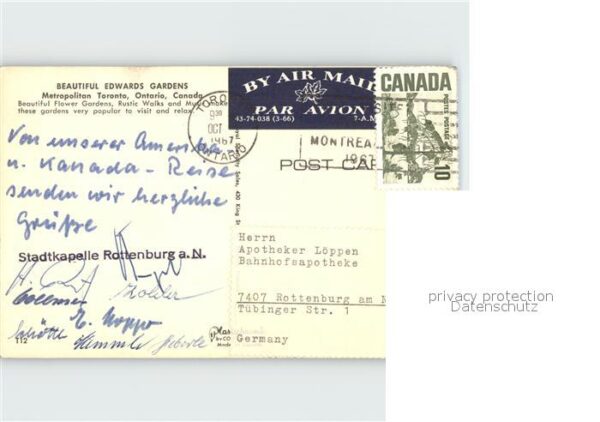 BEAUTIFUL EDWARDS GARDENS
Metropolitan Toronto, Ontario, Canada
Beautiful Flower Gardens, Rustic Walks and Much
these gardens very popular to visit and relax.
Von unserer Amerika-
u. Kanada-Reise
senden wir herzliche
Grüße
Stadtkapelle Rottenburg a.N.
E. Hoppe
Hemmle
112
BY AIR MAIL
PAR AVION
43-74-038 (3-66) 7-A.M.
TORO
9 30
OCT
1967
ONTARIO
MONTREA
1967
CANADA
POSTES POSTAGE
10
POST CAR
Herrn
Apotheker Löppen
Bahnhofsapotheke
7407 Rottenburg am N
Tübinger Str. 1
Germany
privacy protection
Datenschutz